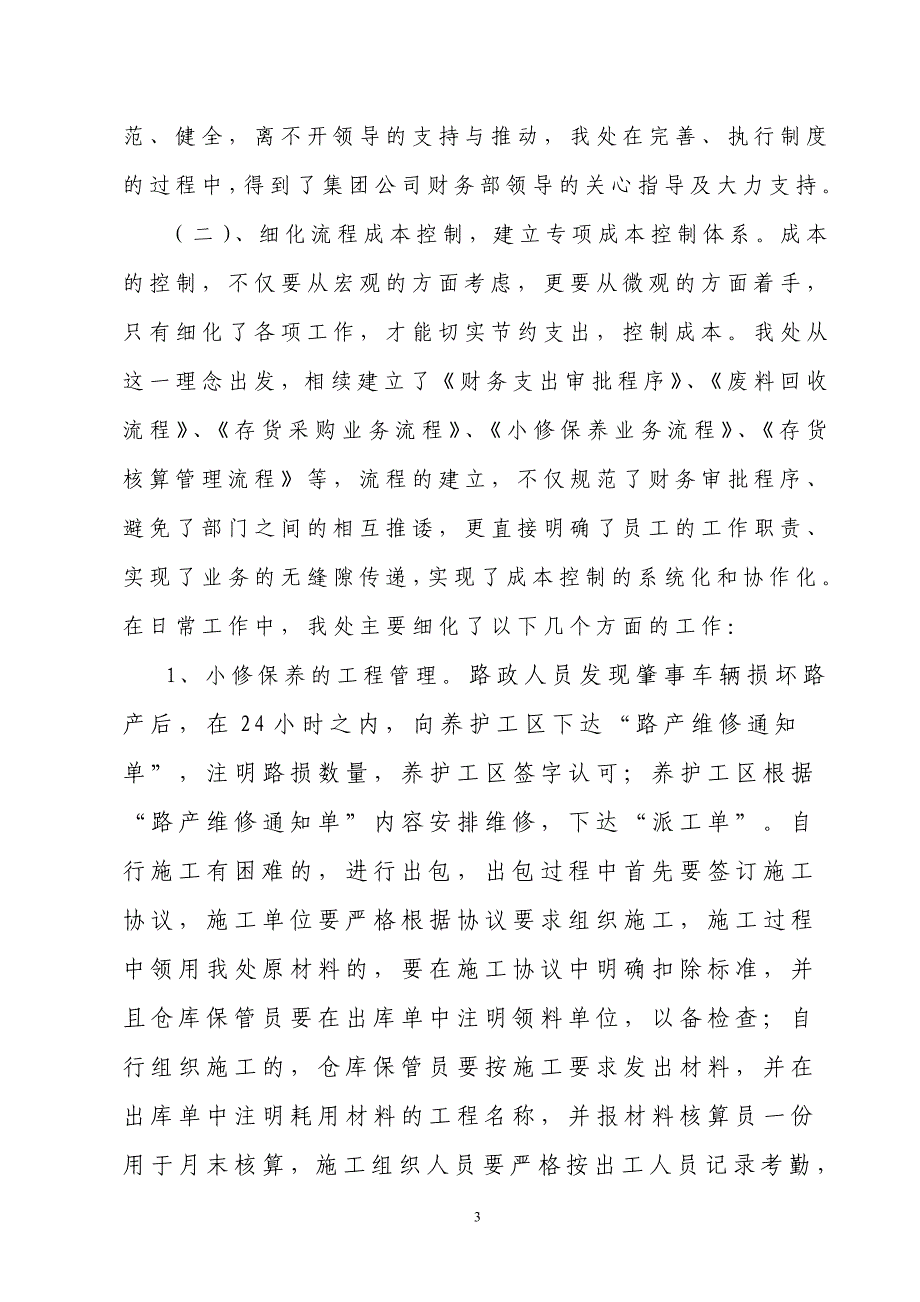 范、健全，离不开领导的支持与推动，我处在完善、执行制度
的过程中，得到了集团公司财务部领导的关心指导及大力支持。
（二）、细化流程成本控制，建立专项成本控制体系。成本
的控制，不仅要从宏观的方面考虑，更要从微观的方面着手，
只有细化了各项工作，才能切实节约支出，控制成本。我处从
这一理念出发，相续建立了《财务支出审批程序》、《废料回收
流程》、《存货采购业务流程》、《小修保养业务流程》、《存货
核算管理流程》等，流程的建立，不仅规范了财务审批程序、
避免了部门之间的相互推诿，更直接明确了员工的工作职责、
实现了业务的无缝隙传递，实现了成本控制的系统化和协作化。
在日常工作中，我处主要细化了以下几个方面的工作：
1、小修保养的工程管理。路政人员发现肇事车辆损坏路
产后，在24小时之内，向养护工区下达“路产维修通知
单”，注明路损数量，养护工区签字认可；养护工区根据
“路产维修通知单”内容安排维修，下达“派工单”。自
行施工有困难的，进行出包，出包过程中首先要签订施工
协议，施工单位要严格根据协议要求组织施工，施工过程
中领用我处原材料的，要在施工协议中明确扣除标准，并
且仓库保管员要在出库单中注明领料单位，以备检查；自
行组织施工的，仓库保管员要按施工要求发出材料，并在
出库单中注明耗用材料的工程名称，并报材料核算员一份
用于月末核算，施工组织人员要严格按出工人员记录考勤，
3